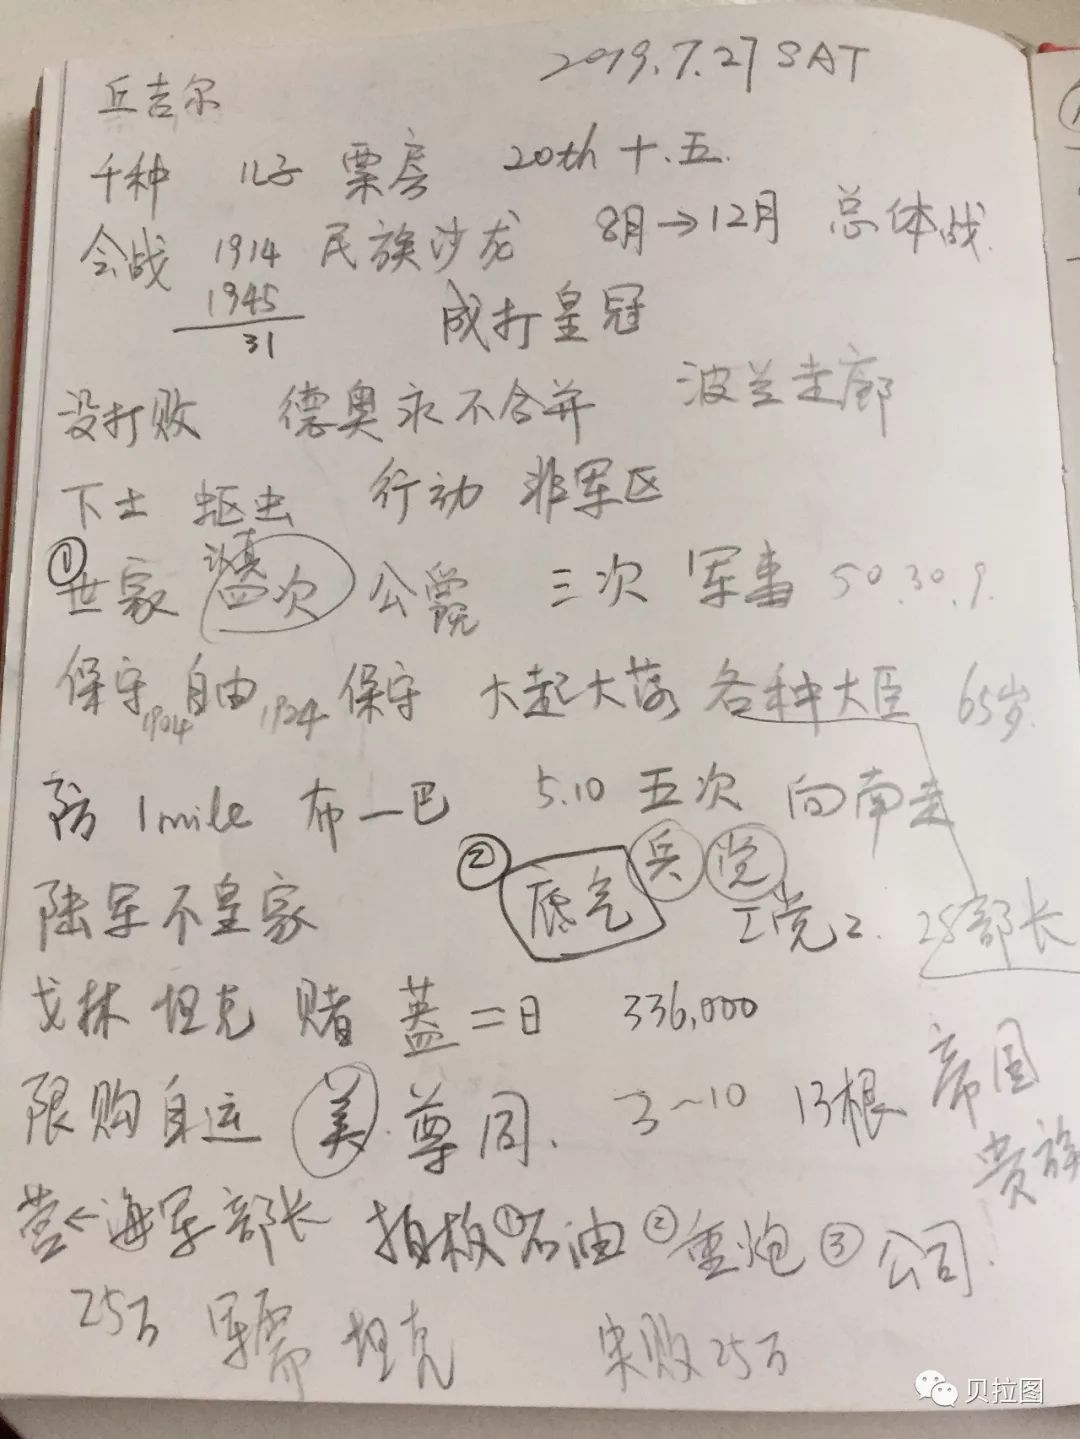 2019.7.27 SAT
丘吉尔
千种 儿子 票房 20th 十.五.
会战 1914 民族沙龙 8月→12月 总体战.
1945
31
成打皇冠
没打败 德奥永不合并 波兰走廊
下士 蚯虫 行动 非军区
认真
①世家 四次 公爵 三次 军事 50.30.9.
院
保守 1904 自由 1924 保守 大起大落 各种大臣 65岁.
1mile 布一巴 5.10 五次 向南走
② 底气 兵 党
陆军不皇家 工党2. 25部长
戈林 坦克 赌 盖=日 336,000
限购自运 美. 尊 同. 3~10 13根 帝国
贵族
营←海军部长 拍板①石油②重炮③公司.
25万 军需 坦克 失败25万
贝拉图